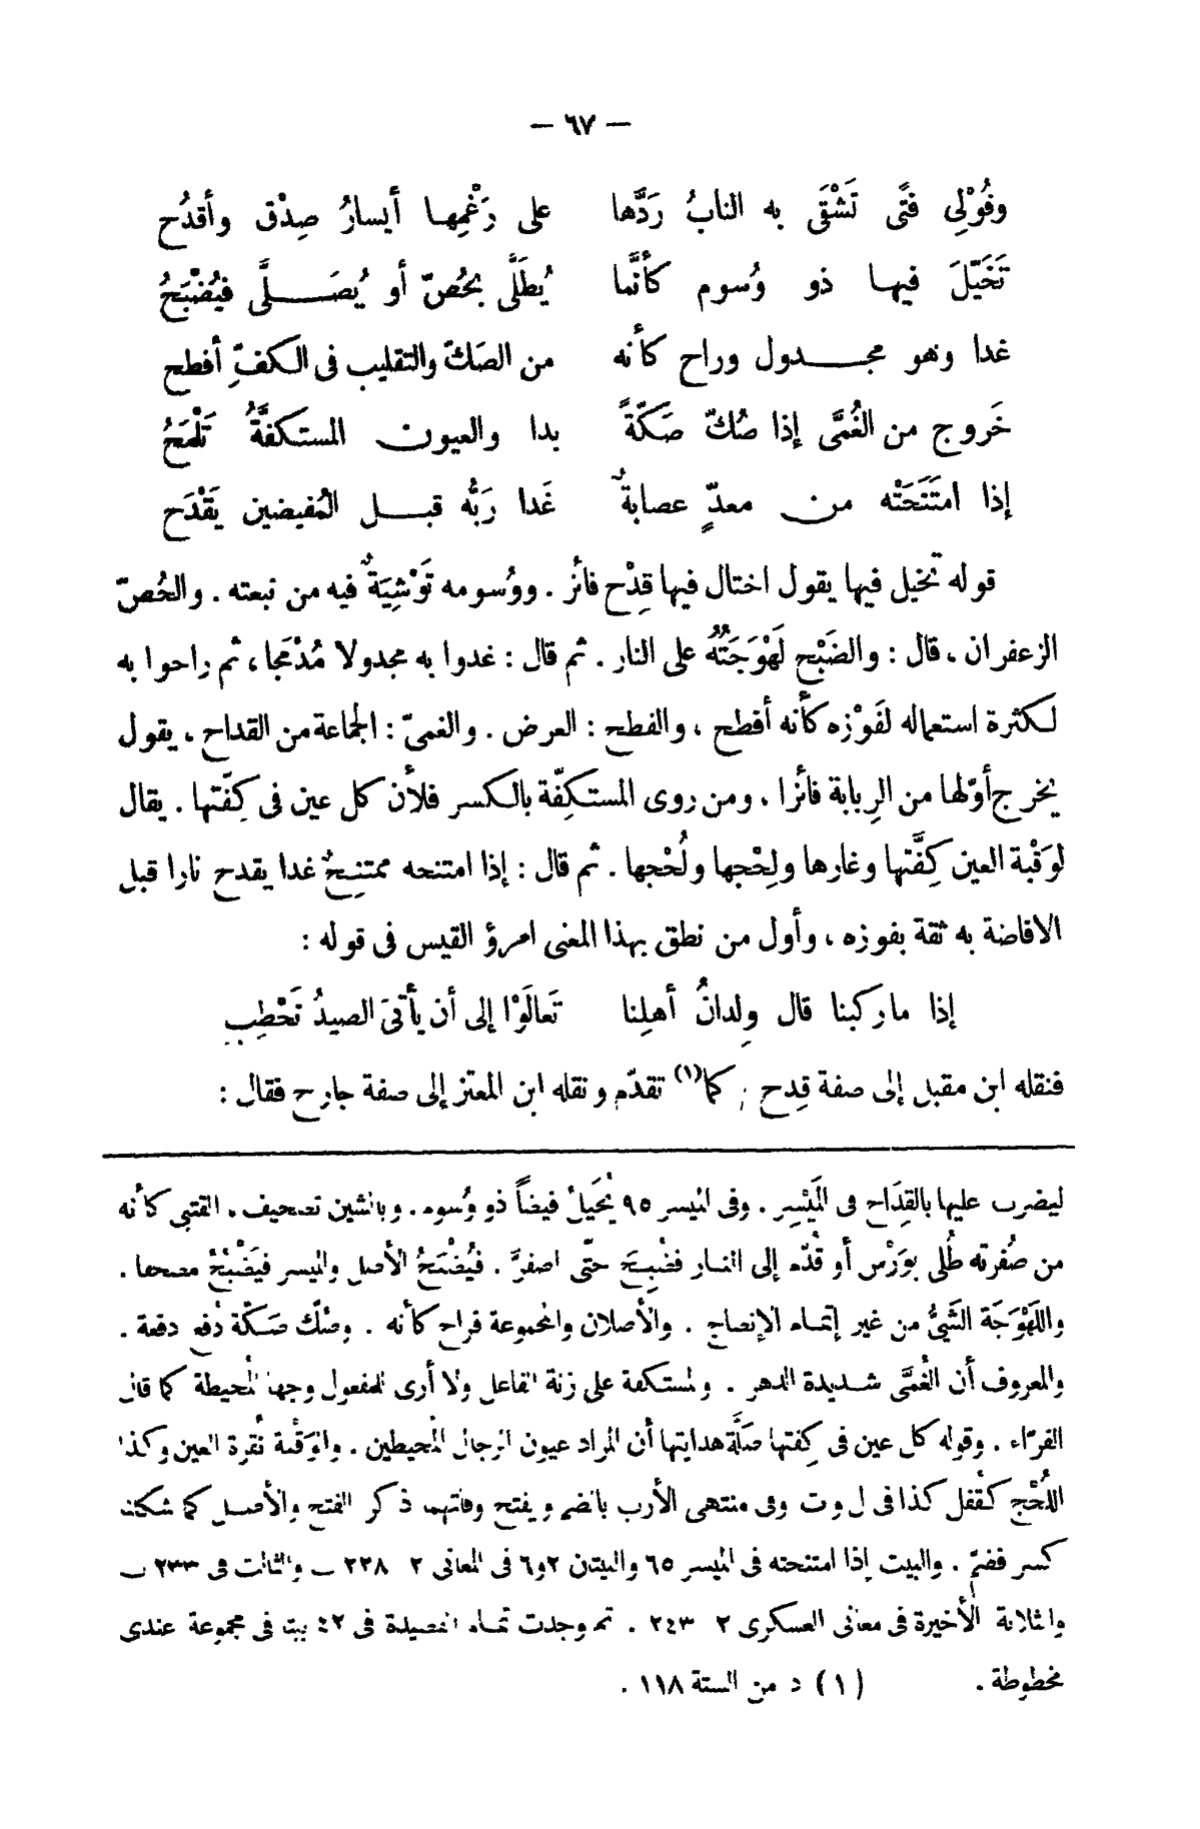 — ٦٧ —
وقُوْلِى فتًى تَشْقَى به النابُ رَدَّها على رَغْمِها أيسارُ صِدْق وأقدُح
تَخَيّلَ فيها ذو وُسوم كأنَّما يُطَلَّى بحُصّ أو يُصَلَّى فيُضْبَحُ
غدا وهو مجدول وراح كأنه من الصَكّ والتقليب فى الكفِّ أفطح
خَروج من الغُمَّى إذا صُكّ صَكّةً بدا والعيون المستكفَّةُ تَلْمَحُ
إذا امتَنَحَتْه من معدٍّ عصابةٌ غَدا رَبُّه قبل المُفيضين يَقْدَح
قوله تخيل فيها يقول اختال فيها قِدْح فائز . ووُسومه تَوْشِيَةٌ فيه من نبعته . والحُصّ
الزعفران ، قال : والضَبْح لَهْوَجَتُهُ على النار . ثم قال : غدوا به مجدولا مُدْمَجا ، ثم راحوا به
لكثرة استعماله لفَوْزه كأنه أفطح ، والفطح : العرض . والغمىّ : الجماعة من القداح ، يقول
يخرج أوّلها من الرِبابة فائزا ، ومن روى المستكِفّة بالكسر فلأن كل عين فى كِفّتها . يقال
لوَقْبة العين كِفَّتها وغارها ولِحْجها ولُحْجها . ثم قال : إذا امتنحه ممتنِحٌ غدا يقدح نارا قبل
الافاضة به ثقة بفوزه ، وأول من نطق بهذا المعنى امرؤ القيس فى قوله :
إذا ما ركبنا قال وِلدانُ أهلِنا تَعالَوْا إلى أن يأتىَ الصيدُ نَحْطِبِ
فنقله ابن مقبل إلى صفة قِدح كما(١) تقدّم ونقله ابن المعتز إلى صفة جارح فقال :
ليضرب عليها بالقِدَاح فى المَيْسِر . وفى الميسر ٩٥ يُخَيَلُ فيضاً ذو وُسوم . وبالشين تصحيف . القتبى كأنه
من صُفرته طُلى بوَرْس أو قُدّم إلى النار فضُبِحَ حتّى اصفرَّ . فيُضْبَحُ الأصل والميسر فيَضْبَحُ مصحفا .
واللَهْوَجَة الشَىُّ من غير إتمام الإنضاج . والأصلان والمجموعة فراح كأنه . وصُكّ صَكّة دُفع دفعة .
والمعروف أن الغُمَّى شديدة الدهر . والمستكفة على زنة الفاعل ولا أرى للمفعول وجها المُحيطة كما قال
الفرّاء . وقوله كل عين فى كِفتها صَلَّة هدايتها أن المراد عيون الرجال المُحيطين . والوَقْبة نُقرة العين وكذا
اللُحْج كقُفل كذا فى ل وت وفى منتهى الأرب بالضم ويفتح وفاتهما ذكر الفتح والأصل كما شكلنا
كسر فضمّ . والبيت إذا امتنحته فى الميسر ٦٥ والبيتان ٢و٦ فى المعانى ٢ ٢٢٨ ب والثالث فى ٢٣٣ ب
والثلاثة الأخيرة فى معانى العسكرى ٢ ٢٤٣ . ثم وجدت تمام القصيدة فى ٤٢ بيتا فى مجموعة عندى
مخطوطة . (١) د من الستة ١١٨ .